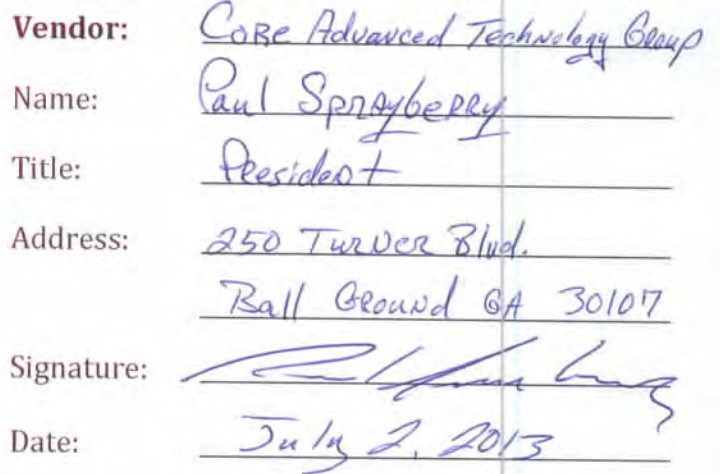 Vendor: Core Advanced Technology Group
Name: Paul Sprayberry
Title: President
Address: 250 Turner Blvd.
Ball Ground GA 30107
Signature:
Date: July 2, 2013